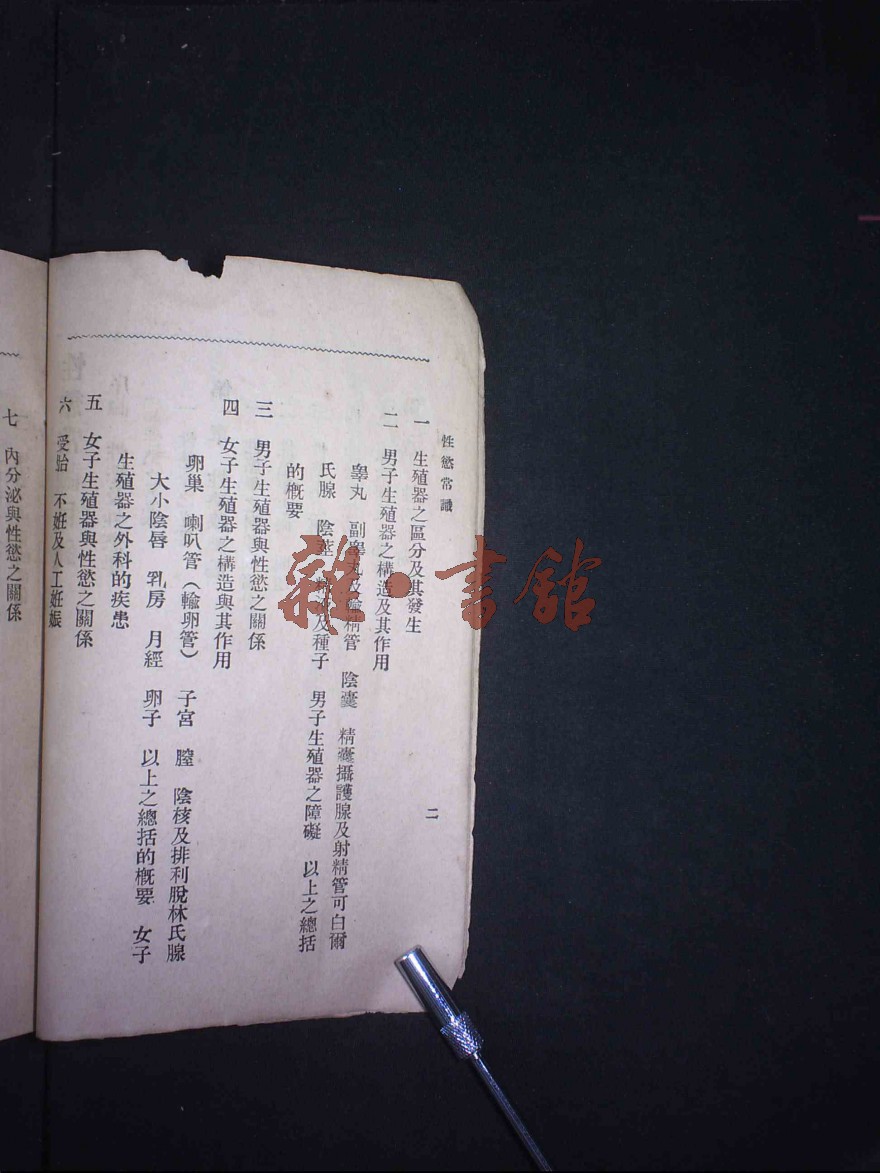 性慾常識
二
一 生殖器之區分及其發生
二 男子生殖器之構造及其作用
睾丸 副睾丸及輸精管 陰囊 精囊攝護腺及射精管可白爾
氏腺 陰莖 精液及種子 男子生殖器之障礙 以上之總括
的概要
三 男子生殖器與性慾之關係
四 女子生殖器之構造與其作用
卵巢 喇叭管（輸卵管） 子宮 膣 陰核及排利脫林氏腺
大小陰唇 乳房 月經 卵子 以上之總括的概要 女子
生殖器之外科的疾患
五 女子生殖器與性慾之關係
六 受胎 不妊及人工妊娠
七 內分泌與性慾之關係
雜·書館